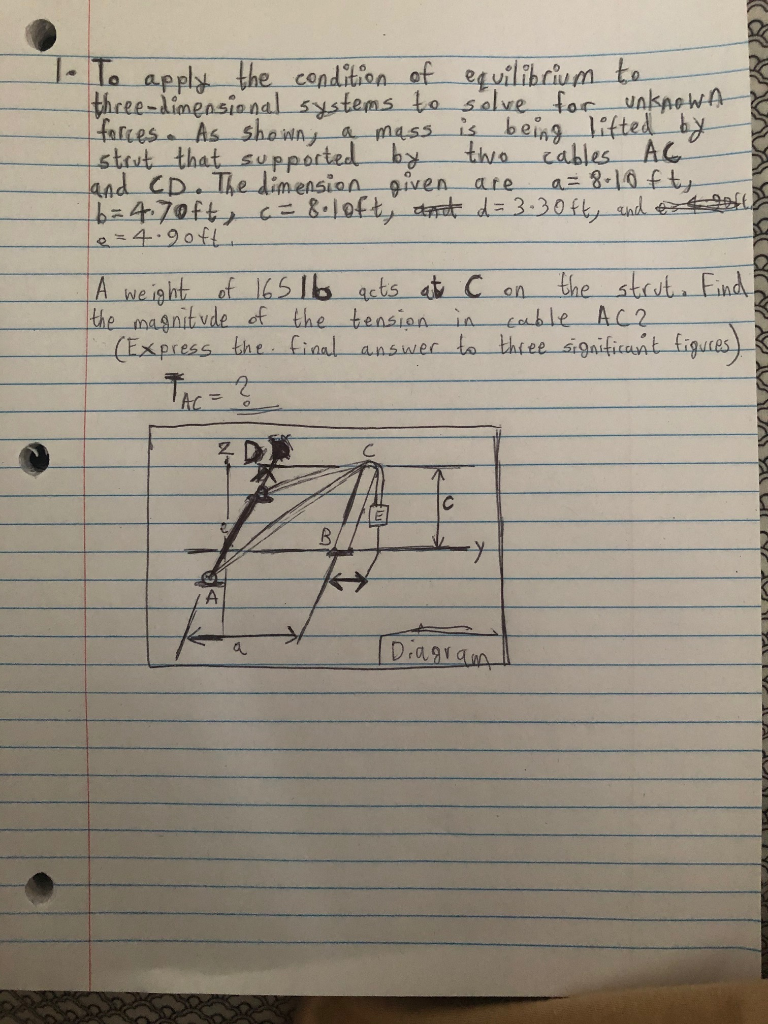 1. To apply the condition of equilibrium to
three-dimensional systems to solve for unknown
forces. As shown, a mass is being lifted by
strut that supported by two cables AC
and CD. The dimension given are a= 8.10 ft,
b= 4.70ft, c= 8.10ft, and d= 3.30ft, and e= 4.90ft
e = 4.90ft.
A weight of 165 lb acts at C on the strut. Find
the magnitude of the tension in cable AC?
(Express the final answer to three significant figures)
TAC = ?
Z D C
c
E
e
B
y
A
a
Diagram